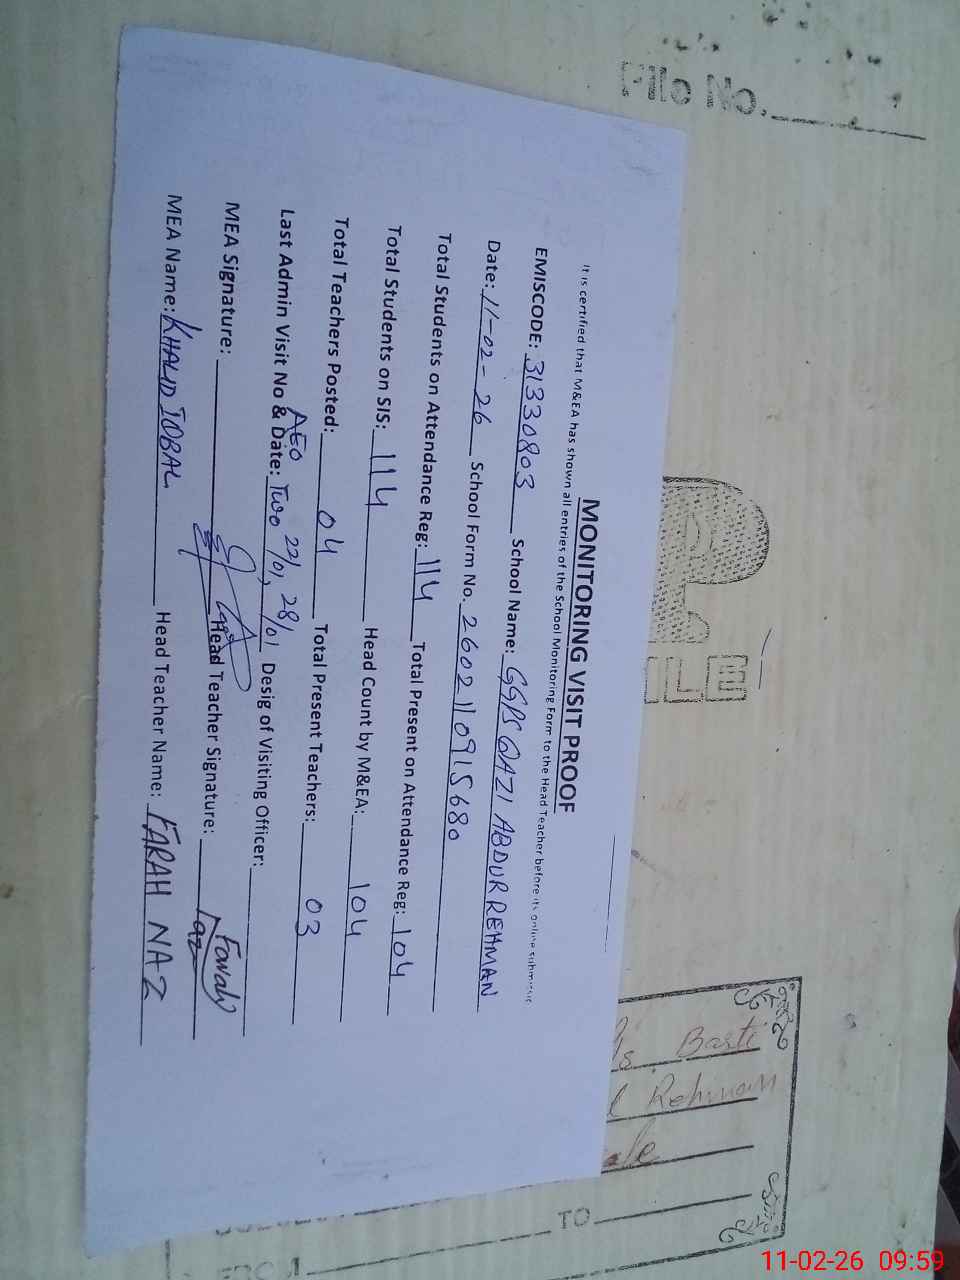 MONITORING VISIT PROOF
It is certified that M&EA has shown all entries of the School Monitoring Form to the Head Teacher before its online submissic
EMISCODE: 31330803 School Name: GGPS QAZI ABDUR REHMAN
Date: 11-02-26 School Form No. 2602110915680
Total Students on Attendance Reg: 114 Total Present on Attendance Reg: 104
Total Students on SIS: 114 Head Count by M&EA: 104
Total Teachers Posted: 04 Total Present Teachers: 03
AEO
Last Admin Visit No & Date: Two 22/01, 28/01 Desig of Visiting Officer:
MEA Signature: Head Teacher Signature: Farah Naz
MEA Name: KHALID IQBAL Head Teacher Name: FARAH NAZ
FILE NO.
FILE
Basti
Rehman
TO
11-02-26 09:59